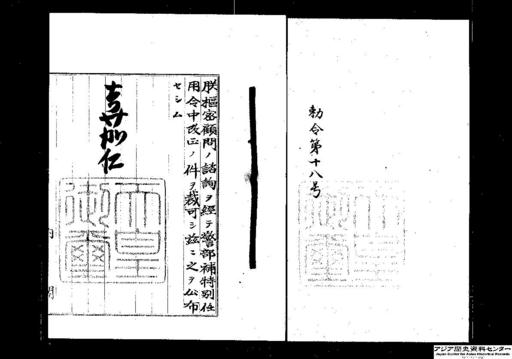 勅令第十八号
朕枢密顧問ノ諮詢ヲ経テ警部補特別任
用令中改正ノ件ヲ裁可シ茲ニ之ヲ公布
セシム
嘉仁
天皇
御璽
内
閣
アジア歴史資料センター
Japan Center for Asian Historical Records